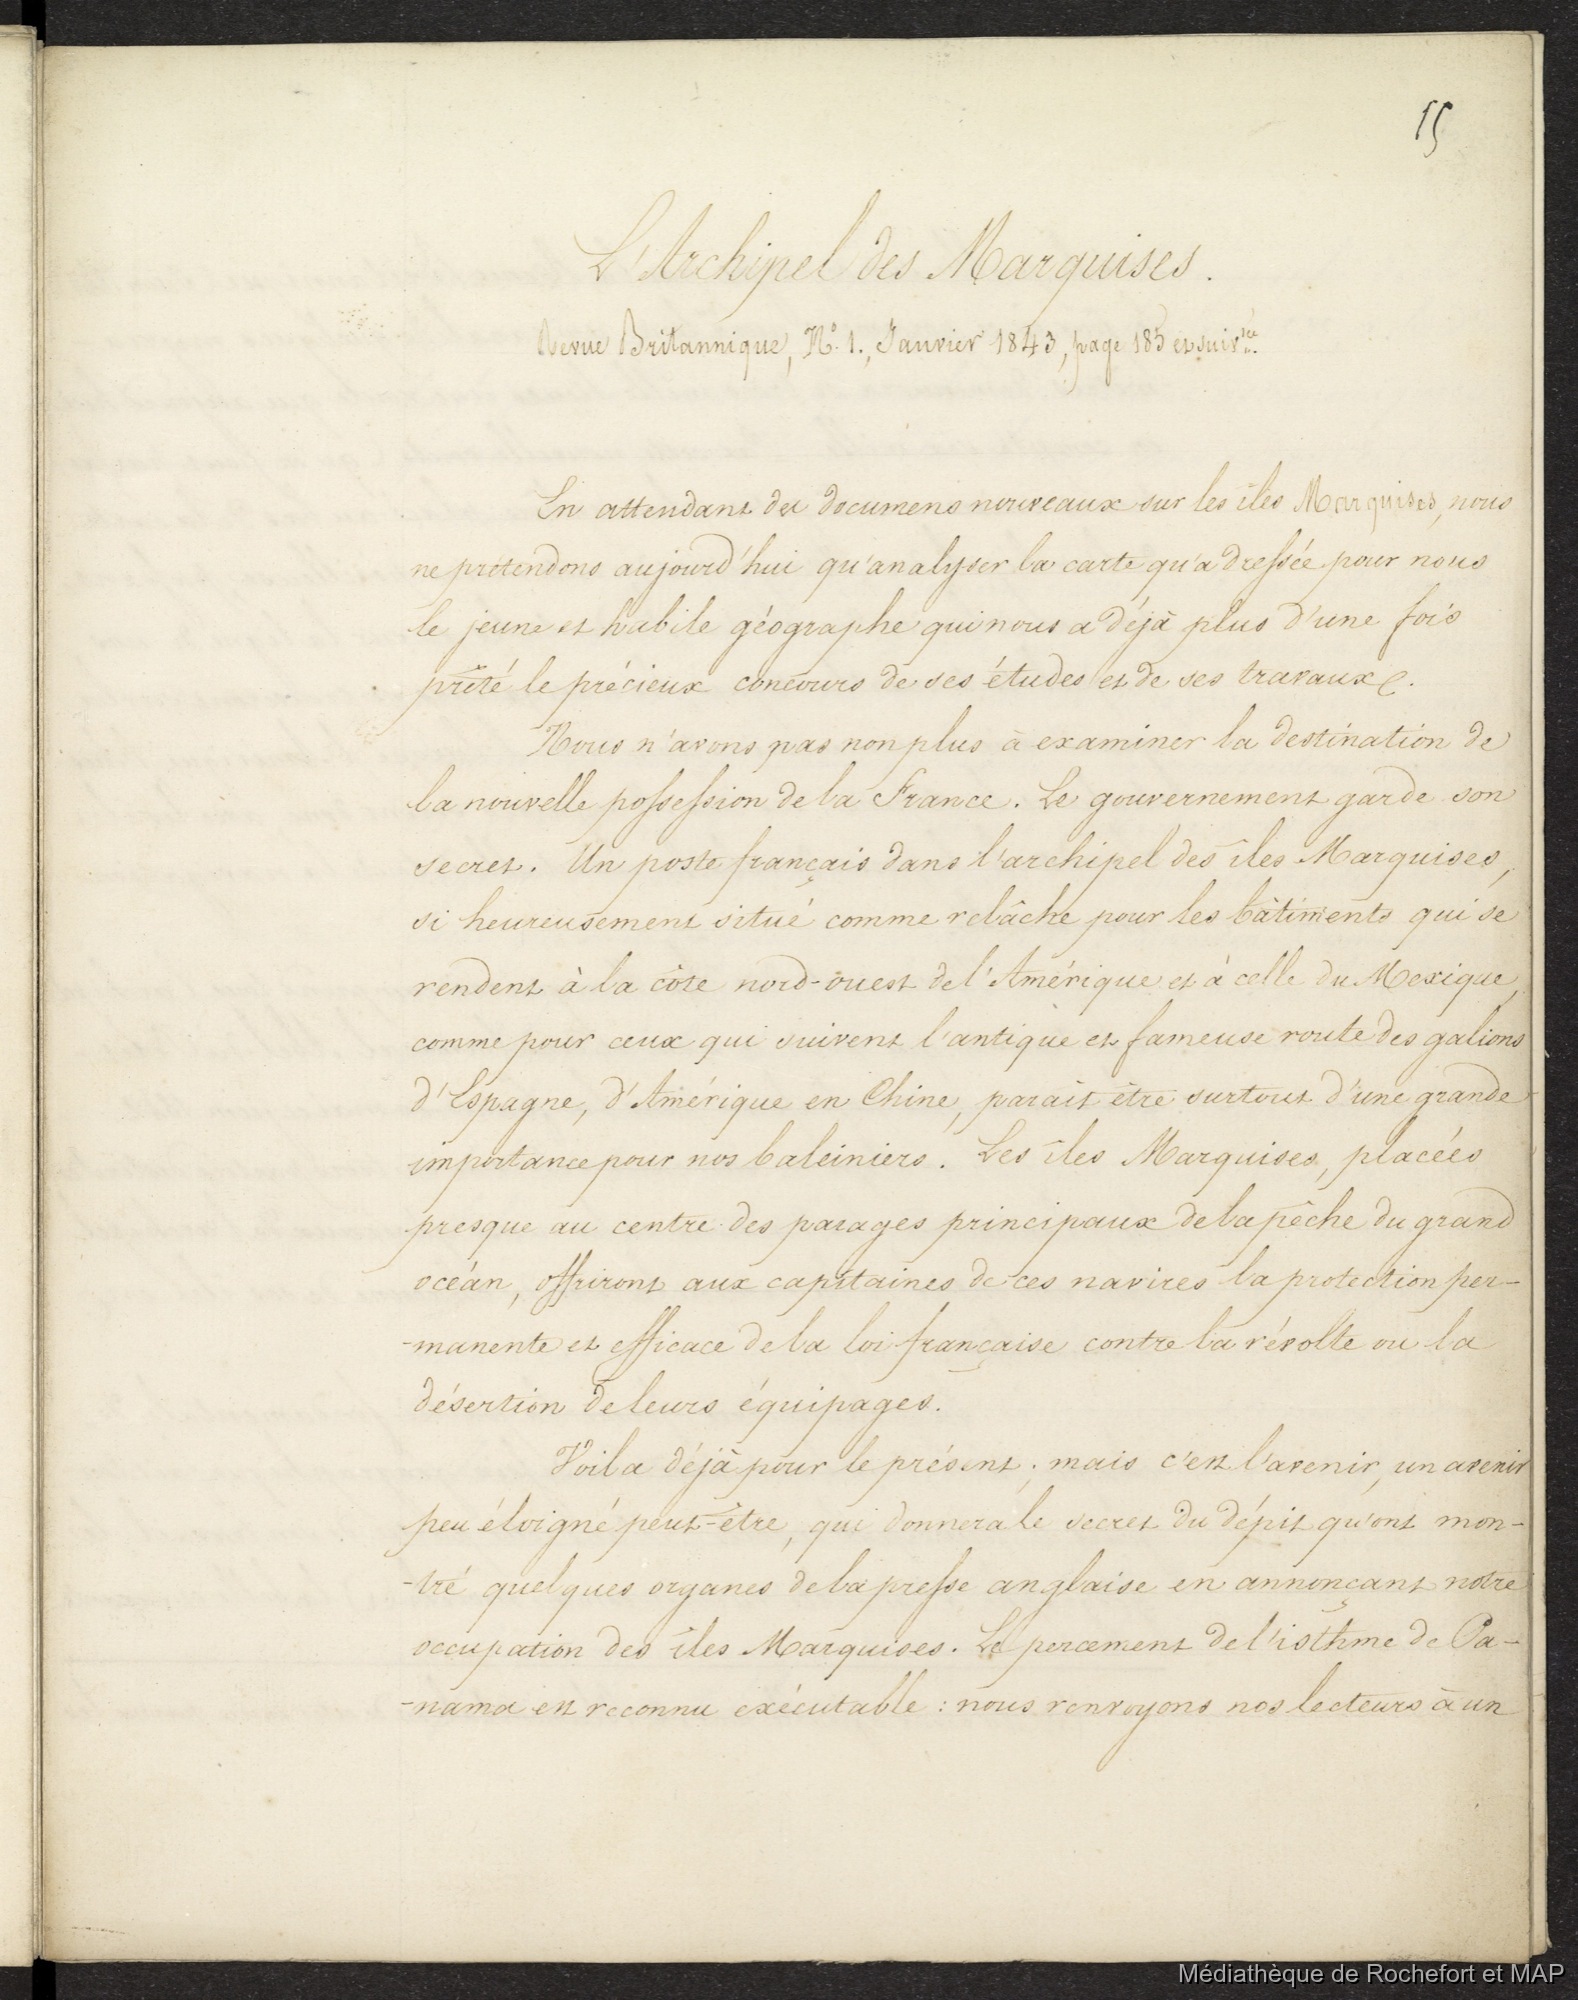 15
L'Archipel des Marquises.
Revue Britannique, N.o 1., Janvier 1843, page 185 et suiv.tes
En attendant des documens nouveaux sur les îles Marquises, nous
ne prétendons aujourd'hui qu'analyser la carte qu'a dressée pour nous
le jeune et habile géographe qui nous a déjà plus d'une fois
prêté le précieux concours de ses études et de ses travaux.
Nous n'avons pas non plus à examiner la destination de
la nouvelle possession de la France. Le gouvernement garde son
secret. Un poste français dans l'archipel des îles Marquises,
si heureusement situé comme relâche pour les bâtiments qui se
rendent à la côte nord-ouest de l'Amérique et à celle du Mexique,
comme pour ceux qui suivent l'antique et fameuse route des galions
d'Espagne, d'Amérique en Chine, parait être surtout d'une grande
importance pour nos baleiniers. Les îles Marquises, placées
presque au centre des parages principaux de la pêche du grand
océan, offriront aux capitaines de ces navires la protection per-
-manente et efficace de la loi française contre la révolte ou la
désertion de leurs équipages.
Voila déjà pour le présent ; mais c'est l'avenir, un avenir
peu éloigné peut-être, qui donnera le secret du dépit qu'ont mon-
-tré quelques organes de la presse anglaise en annonçant notre
occupation des îles Marquises. Le percement de l'isthme de Pa-
-nama est reconnu exécutable : nous renvoyons nos lecteurs à un
Médiathèque de Rochefort et MAP